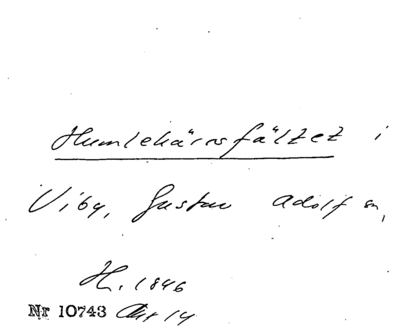 Humlekärrsfältet i
Viby, Gustav Adolf sn,
H. 1846
Nr 10743 Akt 14